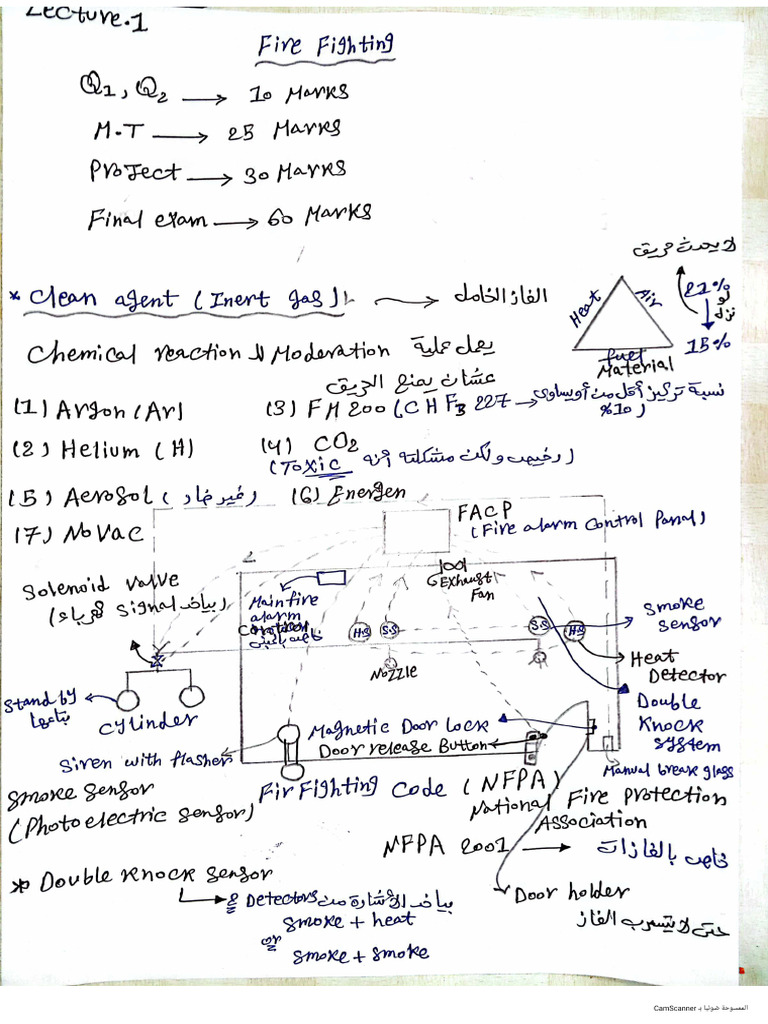 Lecture.1
Fire Fighting
Q1, Q2 → 10 Marks
M.T → 25 Marks
Project → 30 Marks
Final exam → 60 Marks
لا يحدث حريق
* Clean agent (Inert gas) → الغاز الخامل
Heat
Air
fuel
Material
21%
لو
نزل
15%
Chemical reaction لل Moderation يعمل عملية
عشان يمنع الحريق
(1) Argon (Ar)
(3) FM200 (CHF3 227 → نسبة تركيز أقل من أو يساوى
10%)
(2) Helium (H)
(4) CO2
(رخيص ولكن مشكلته أنه Toxic)
(5) Aerosol (غير ضار)
(6) Energen
(7) NoVac
FACP
(Fire alarm Control Panel)
Solenoid valve
(بياخد Signal كهرباء)
Main fire
alarm
Exhaust
Fan
H.S
S.S
S.S
H.S
Smoke
sensor
Heat
Detector
Nozzle
Stand by
بتاعها
Cylinder
Double
Knock
system
Magnetic Door Lock
Door release Button
Siren with flasher
Manual break glass
Smoke sensor
(Photo electric sensor)
Fir Fighting Code (NFPA)
National Fire Protection
Association
NFPA 2001 → خاص بالغازات
* Double Knock sensor
2 Detectors بياخد الأشارة من
smoke + heat
or
smoke + smoke
Door holder
حتى لا يتسرب الغاز
الممسوحة ضوئيا بـ CamScanner